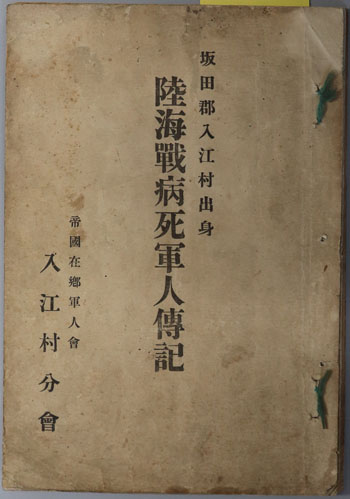 坂田郡入江村出身
陸海戰病死軍人傳記
帝國在鄉軍人會
入江村分會